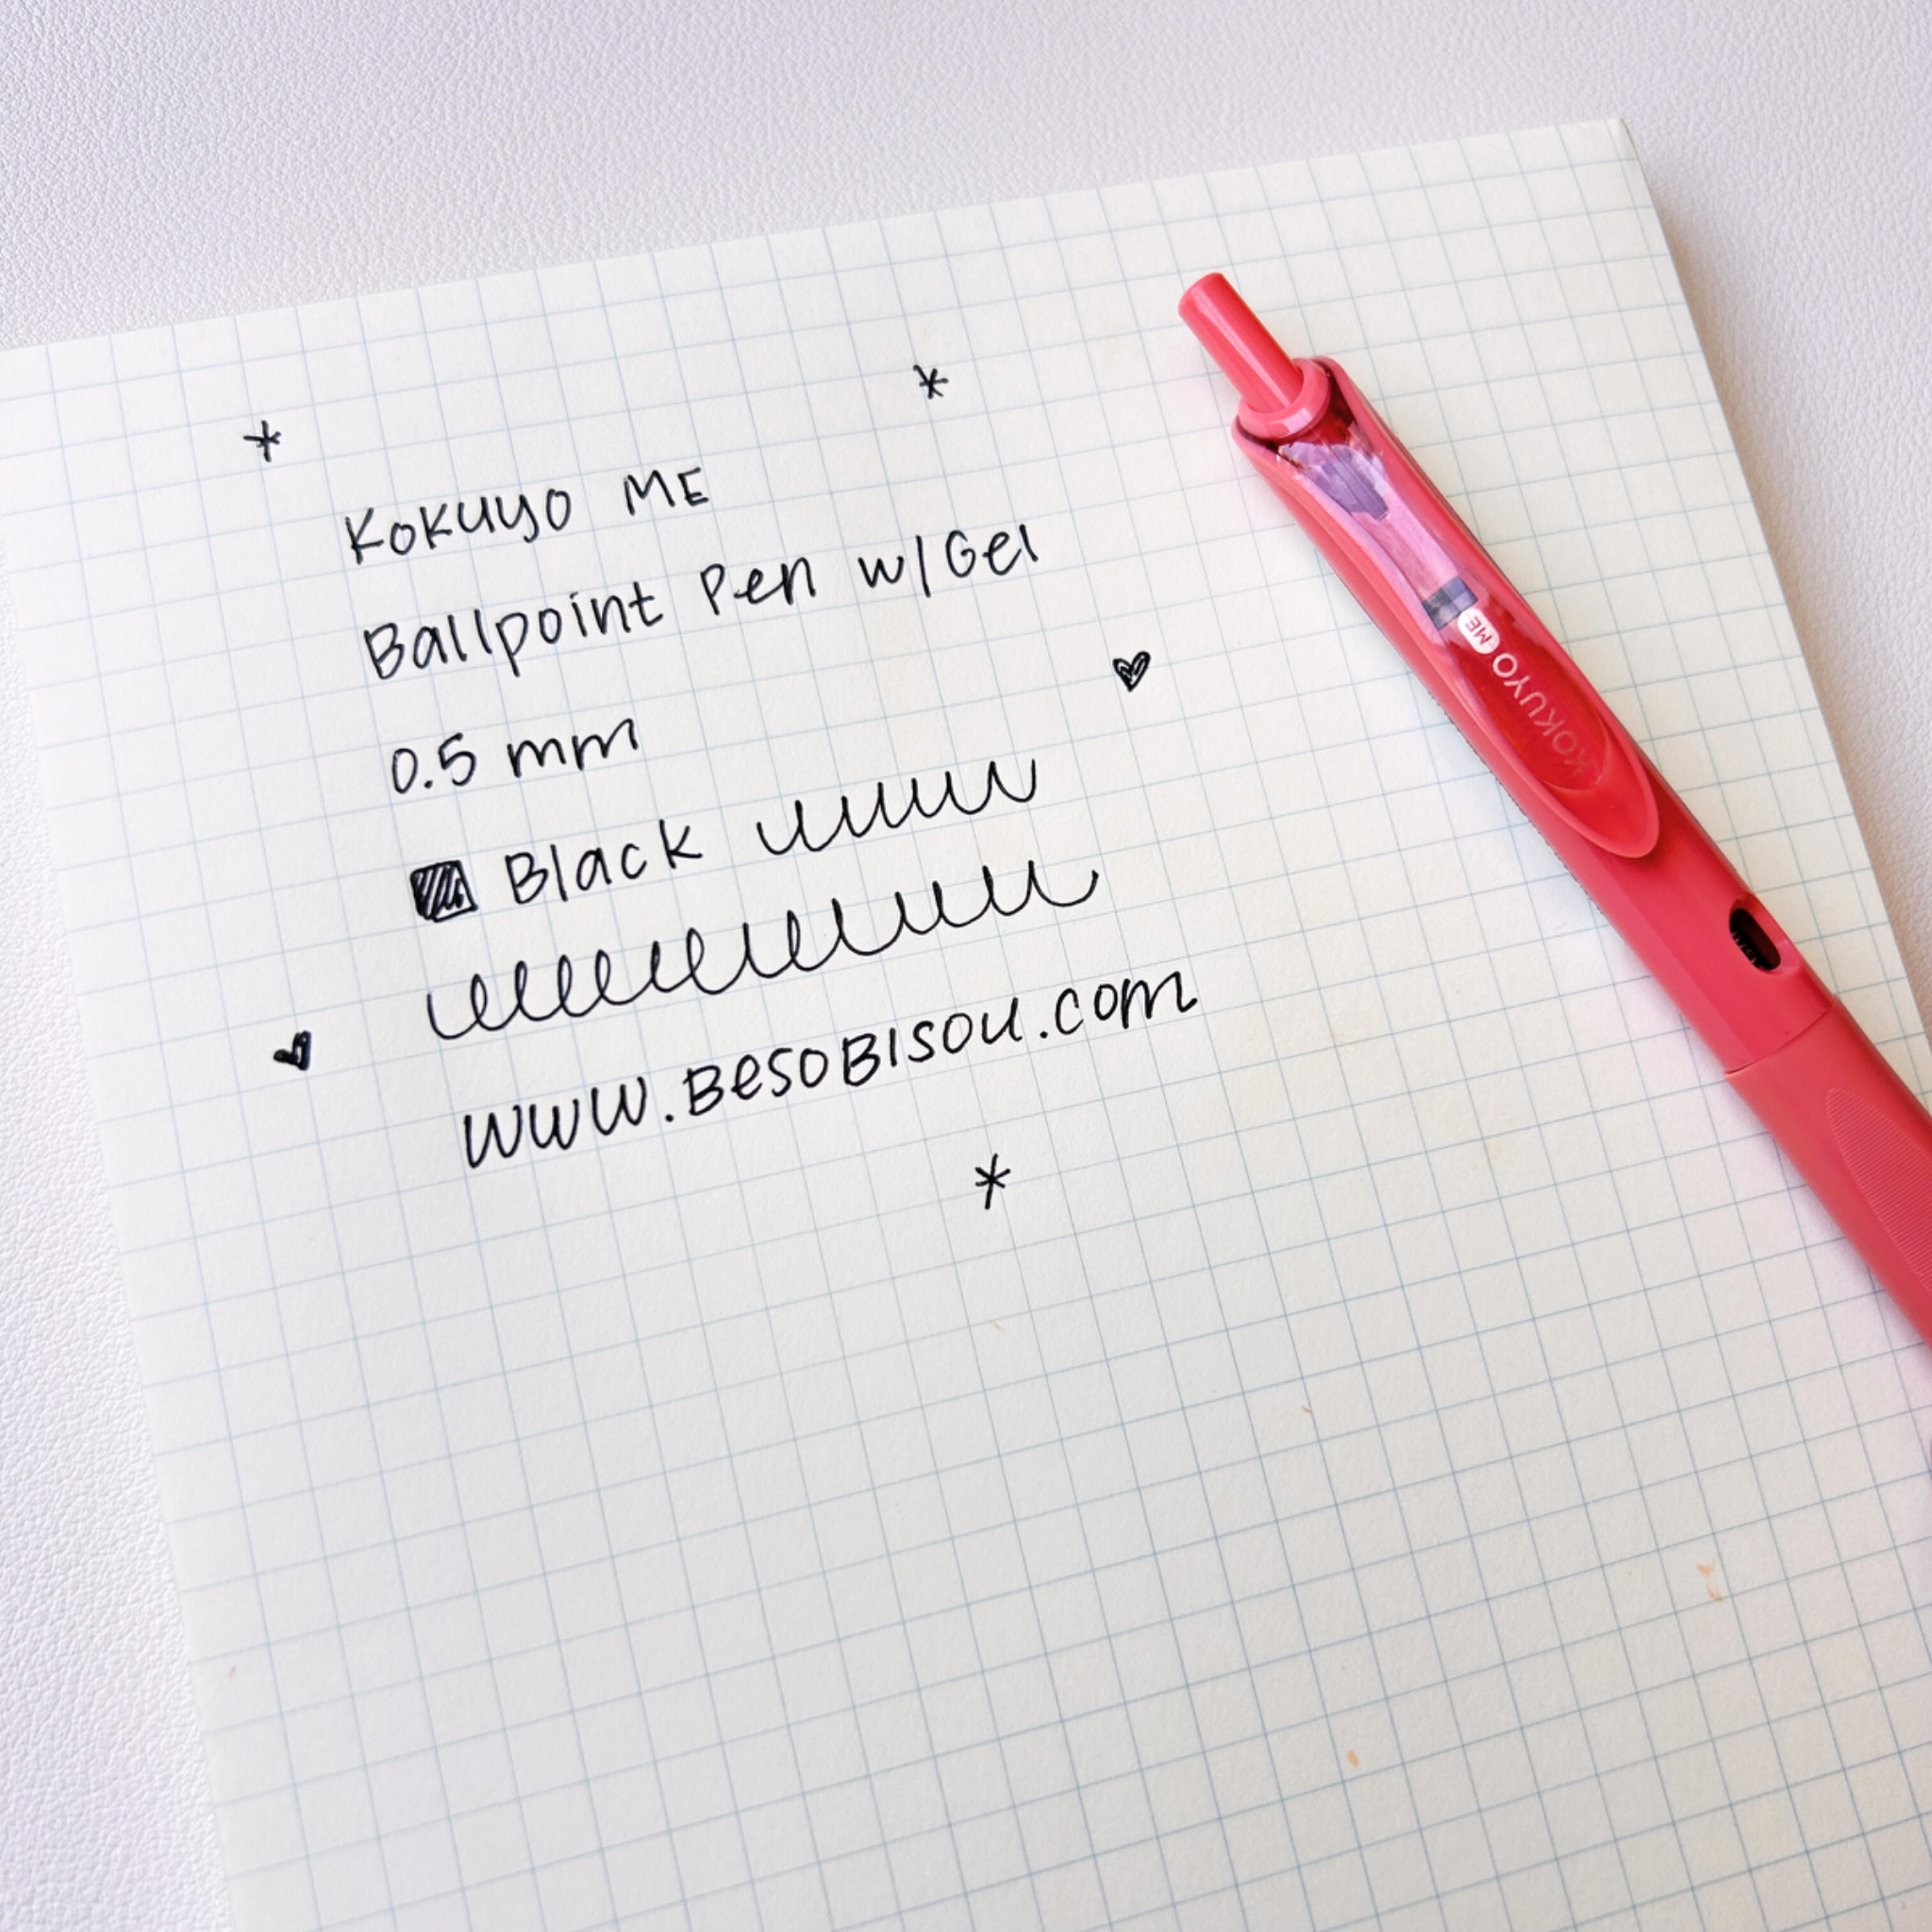 KOKUYO ME
Ballpoint Pen w/Gel
0.5 mm
Black
www.BesoBisou.com
KOKUYO ME